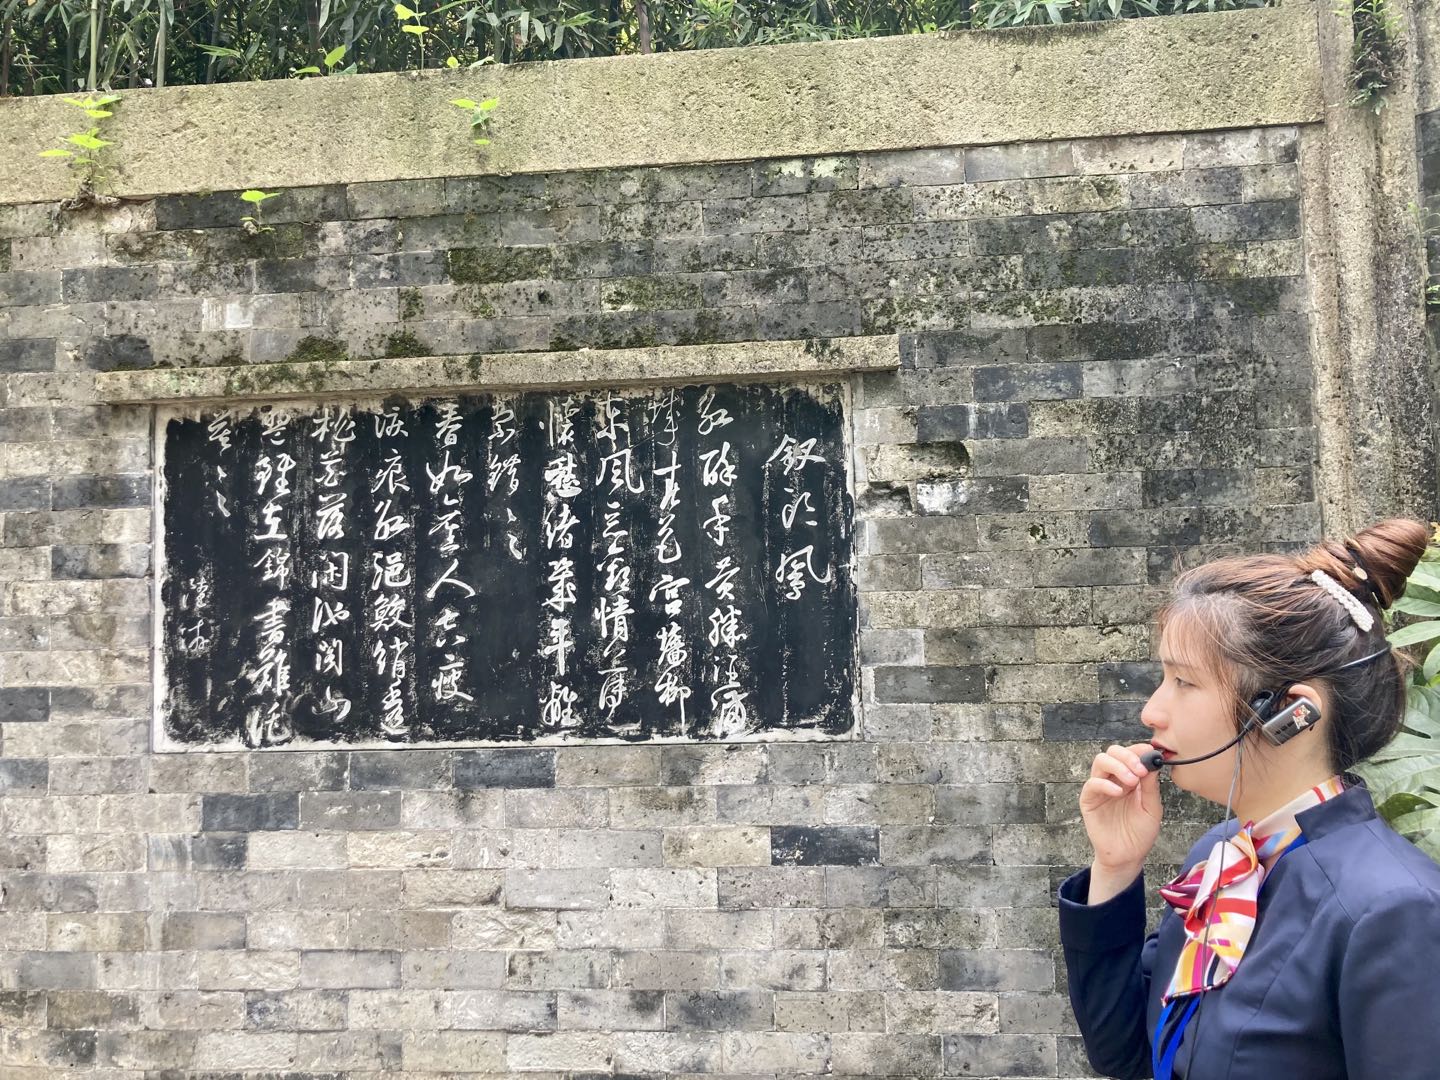 釵头鳳
红酥手黄縢酒滿
城春色宫墻柳
东風惡歡情薄一
懷愁緒幾年離
索錯〻〻
春如舊人空瘦
淚痕红浥鮫绡透
桃花落闲池閣山
盟雖在錦書難託
莫〻〻
陸游